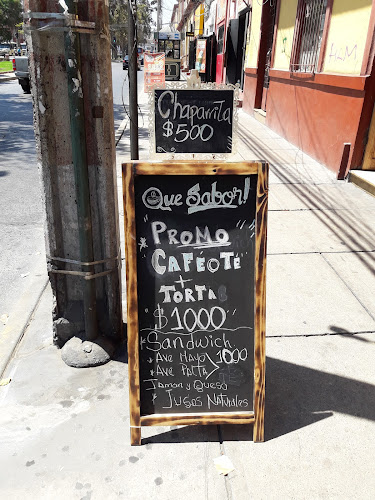 Chaparrita
$500
Que Sabor!
"PROMO"
CAFÉ O TÉ
+
TORTA
$1000
* Sandwich
* Ave Mayo
1000
* Ave Palta
Jamon y Queso
* Jugos Naturales